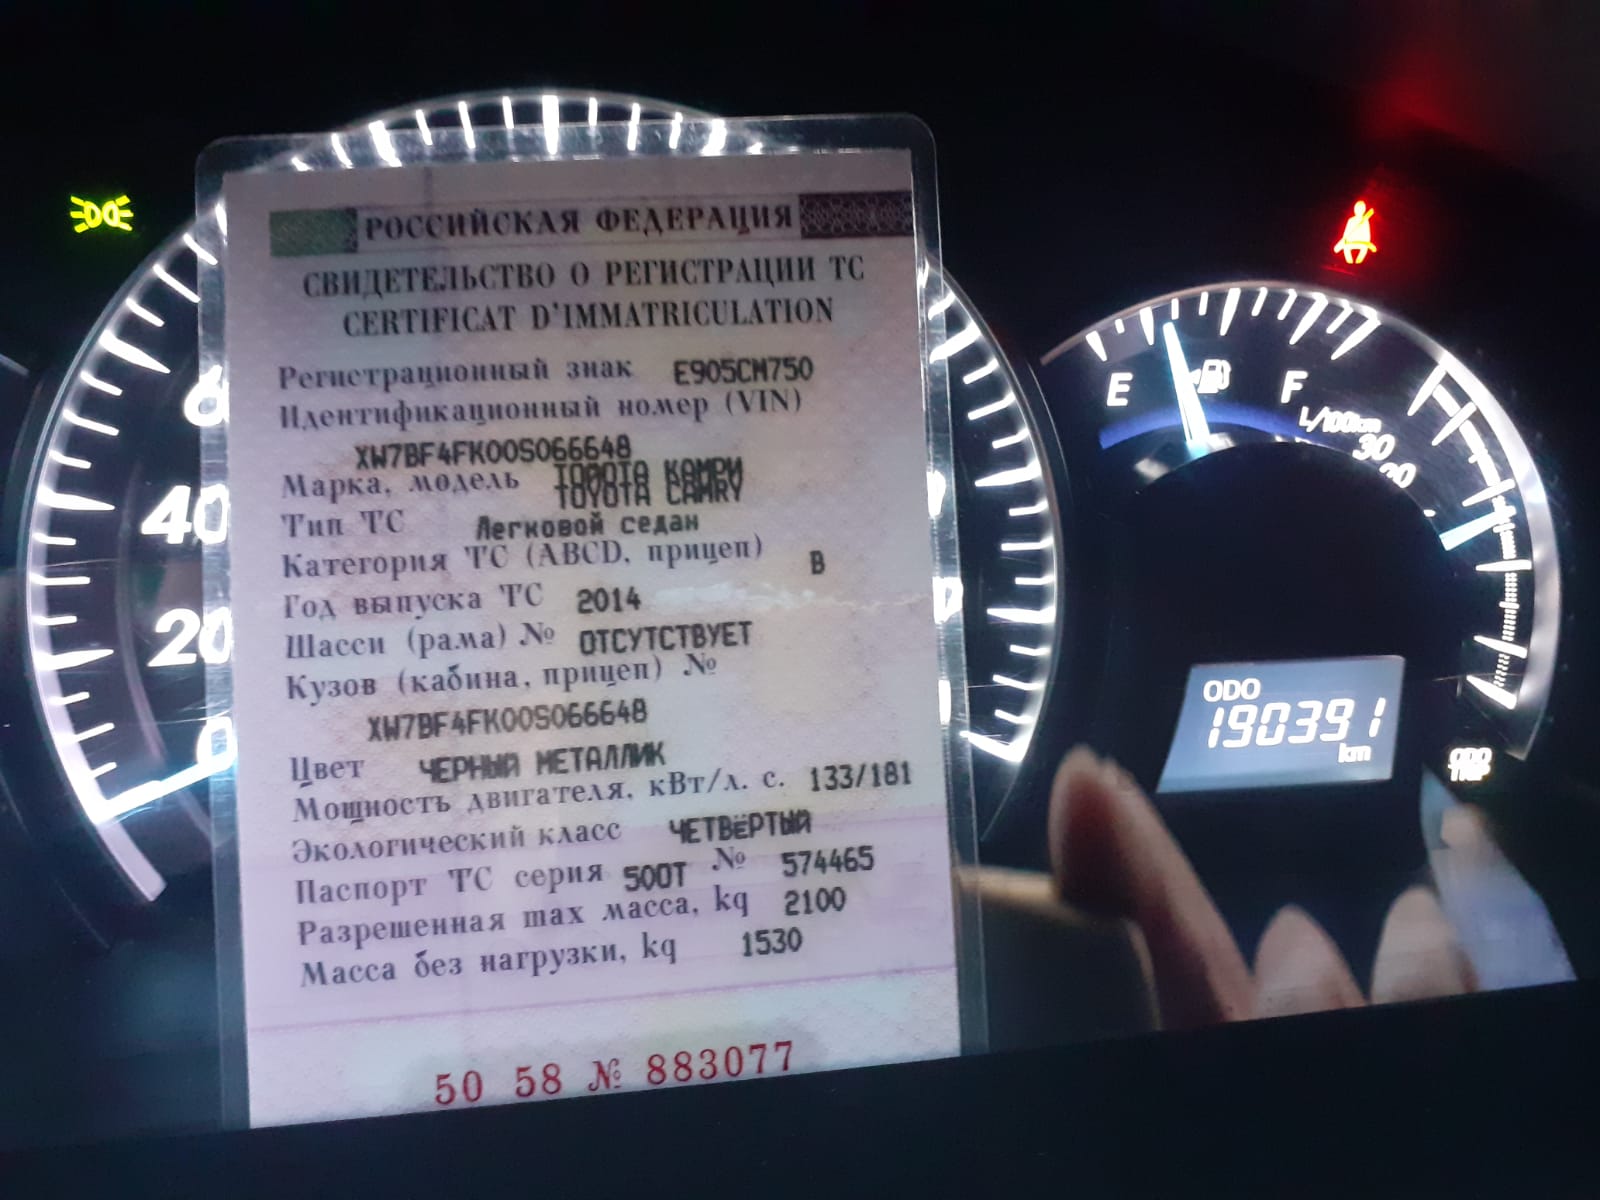 РОССИЙСКАЯ ФЕДЕРАЦИЯ
СВИДЕТЕЛЬСТВО О РЕГИСТРАЦИИ ТС
CERTIFICAT D'IMMATRICULATION
Регистрационный знак Е905СМ750
Идентификационный номер (VIN)
XW7BF4FK00S066648
Марка, модель ТОЙОТА КАМРИ
TOYOTA CAMRY
Тип ТС Легковой седан
Категория ТС (ABCD, прицеп) B
Год выпуска ТС 2014
Шасси (рама) № ОТСУТСТВУЕТ
Кузов (кабина, прицеп) №
XW7BF4FK00S066648
Цвет ЧЕРНЫЙ МЕТАЛЛИК
Мощность двигателя, кВт/л. с. 133/181
Экологический класс ЧЕТВЁРТЫЙ
Паспорт ТС серия 50ОТ № 574465
Разрешенная max масса, kg 2100
Масса без нагрузки, kg 1530
50 58 № 883077
40
20
0
E F
L/100km
30
ODO
190391
km
ODO
TRIP